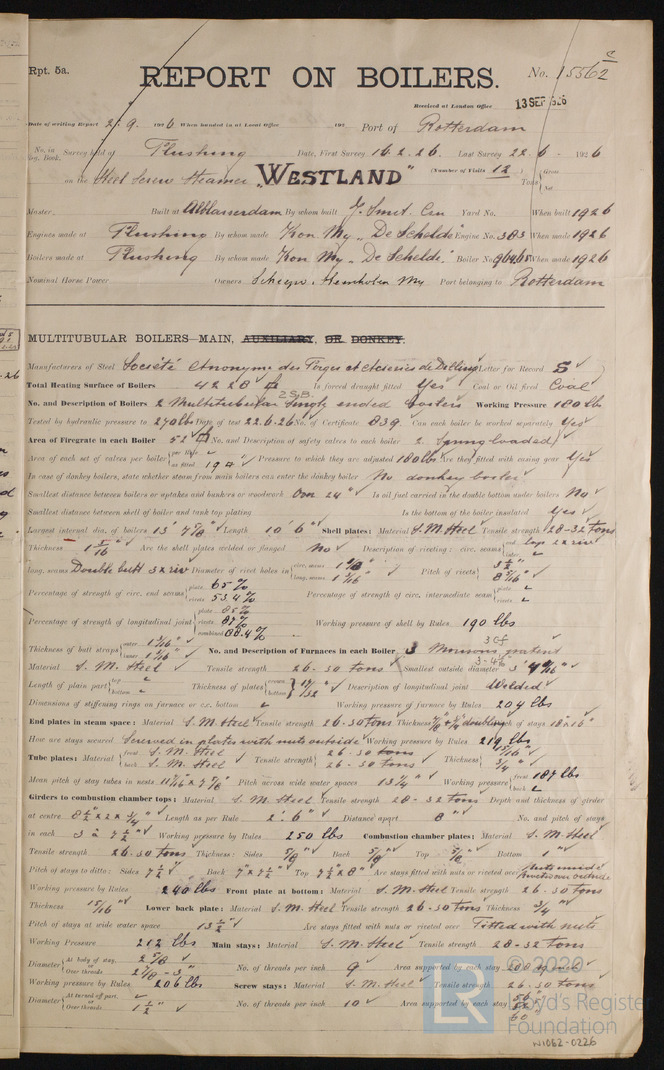 Rpt. 5a.
REPORT ON BOILERS.
No. 15562
Received at London Office 13 SEP 1926
Date of writing Report 2. 9. 1926 When handed in at Local Office 192 Port of Rotterdam
No. in Reg. Book. Survey held at Flushing Date, First Survey 16.2.26. Last Survey 22-6-1926
on the Steel Screw Steamer "WESTLAND" (Number of Visits 12) Tons Gross Net
Master, Built at Alblasserdam By whom built J. Smit. Czn Yard No. When built 1926
Engines made at Flushing By whom made Kon. My. "De Schelde" Engine No. 383 When made 1926
Boilers made at Flushing By whom made Kon. My. "De Schelde." Boiler No. When made 1926
Nominal Horse Power Owners My Port belonging to Rotterdam
MULTITUBULAR BOILERS—MAIN, AUXILIARY, OR DONKEY.
Manufacturers of Steel Société Anonyme des Forges et Acieries de Dilling Letter for Record S
Total Heating Surface of Boilers 4228 Is forced draught fitted Yes Coal or Oil fired Coal
2 S.B.
No. and Description of Boilers 2 Multitubular Single ended boilers Working Pressure 180 lb
Tested by hydraulic pressure to 270 lbs Date of test 22.6.26 No. of Certificate 839. Can each boiler be worked separately Yes
Area of Firegrate in each Boiler 52 No. and Description of safety valves to each boiler 2. Spring loaded
Area of each set of valves per boiler per Rule as fitted Pressure to which they are adjusted 180 lbs Are they fitted with easing gear Yes
In case of donkey boilers, state whether steam from main boilers can enter the donkey boiler No donkey boiler
Smallest distance between boilers or uptakes and bunkers or woodwork Over 24" Is oil fuel carried in the double bottom under boilers No
Smallest distance between shell of boiler and tank top plating Is the bottom of the boiler insulated Yes
Largest internal dia. of boilers 13' 7 5/8" Length 10' 6" Shell plates: Material S. M. Steel Tensile strength 28-32 tons
Thickness 1 5/16" Are the shell plates welded or flanged No Description of riveting: circ. seams end lap 2 x riv
long. seams Double butt 3 x riv Diameter of rivet holes in circ. seams long. seams 1 7/16" Pitch of rivets 3 1/2" 8 5/16"
Percentage of strength of circ. end seams plate 65 % rivets 53.4 % Percentage of strength of circ. intermediate seam plate rivets
Percentage of strength of longitudinal joint plate rivets 87 % combined 88.4 % Working pressure of shell by Rules 190 lbs
Thickness of butt straps outer 1 3/16" inner 1 7/16" No. and Description of Furnaces in each Boiler 3 Morrisons patent
3 Cf
Material S. M. Steel Tensile strength 26-30 tons Smallest outside diameter 3' 4
Length of plain part top bottom Thickness of plates crown bottom 17/32" Description of longitudinal joint Welded
Dimensions of stiffening rings on furnace or c.c. bottom Working pressure of furnace by Rules 204 lbs
End plates in steam space: Material S. M. Steel Tensile strength 26-30 tons Thickness doubling Pitch of stays 18 x 16"
How are stays secured Screwed in plates with nuts outside Working pressure by Rules 219 lbs
Tube plates: Material front S. M. Steel back S. M. Steel Tensile strength 26-30 tons 26-30 tons Thickness 15/16" 3/4"
Mean pitch of stay tubes in nests Pitch across wide water spaces 13 1/4" Working pressure front 187 lbs back
Girders to combustion chamber tops: Material S. M. Steel Tensile strength 28-32 tons Depth and thickness of girder
at centre 8 1/2 x 2 x 3/4" Length as per Rule 2' 6" Distance apart 8" No. and pitch of stays
in each 3 à 7 1/2" Working pressure by Rules 250 lbs Combustion chamber plates: Material S. M. Steel
Tensile strength 26-30 tons Thickness: Sides 5/8" Back 5/8" Top 5/8" Bottom 1"
Pitch of stays to ditto: Sides 7 1/2" Back 7" x 7 1/2" Top 7 1/2 x 8" Are stays fitted with nuts or riveted over Nuts inside
Working pressure by Rules 240 lbs Front plate at bottom: Material S. M. Steel Tensile strength 26-30 tons
Thickness 15/16" Lower back plate: Material S. M. Steel Tensile strength 26-30 tons Thickness 3/4"
Pitch of stays at wide water space 13 1/2" Are stays fitted with nuts or riveted over Fitted with nuts
Working Pressure 212 lbs Main stays: Material S. M. Steel Tensile strength 28-32 tons
Diameter At body of stay, 2 7/8" or Over threads 2 7/8 - 3" No. of threads per inch 9 Area supported by each stay 288 sq inch
Working pressure by Rules 206 lbs Screw stays: Material S. M. Steel Tensile strength 26-30 tons
Diameter At turned off part, or Over threads 1 1/2" No. of threads per inch 10 Area supported by each stay 60
© 2020
LR Lloyd's Register
Foundation
W1062-0226